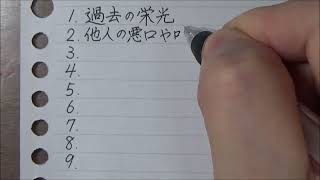 1. 過去の栄光
2. 他人の悪口や
3.
4.
5.
6.
7.
8.
9.